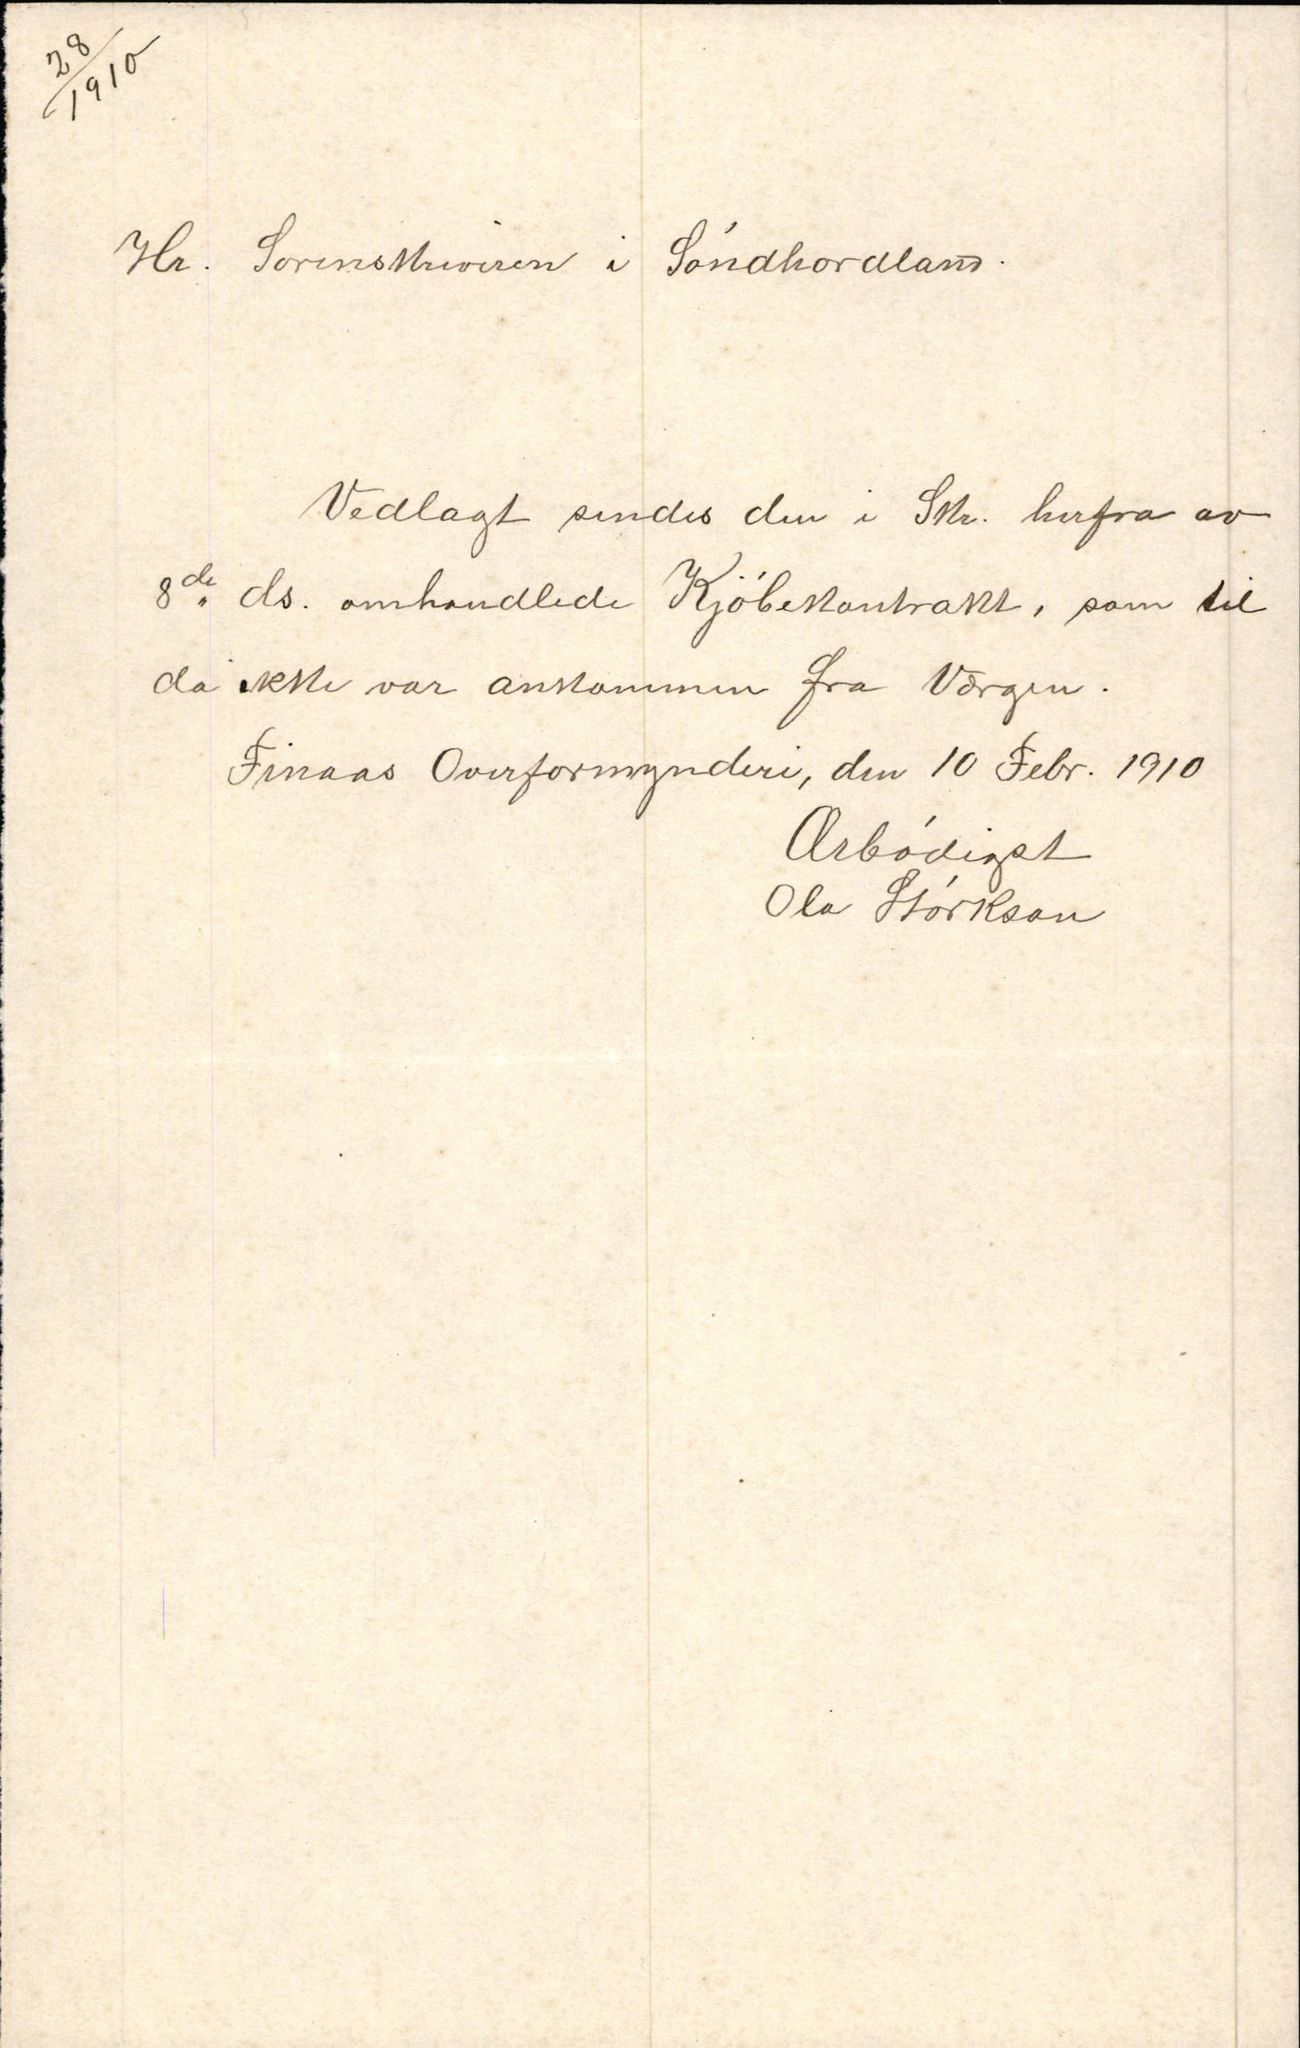 28/1910
Hr. Sorenskriveren i Söndhordland.
Vedlagt sendes den i Skr. herfra av
8de ds. omhandlede Kjöbekontrakt, som til
da ikke var ankommen fra Værgen.
Finaas Overformynderi, den 10 Febr. 1910
Ærbödigst
Ola Störkson